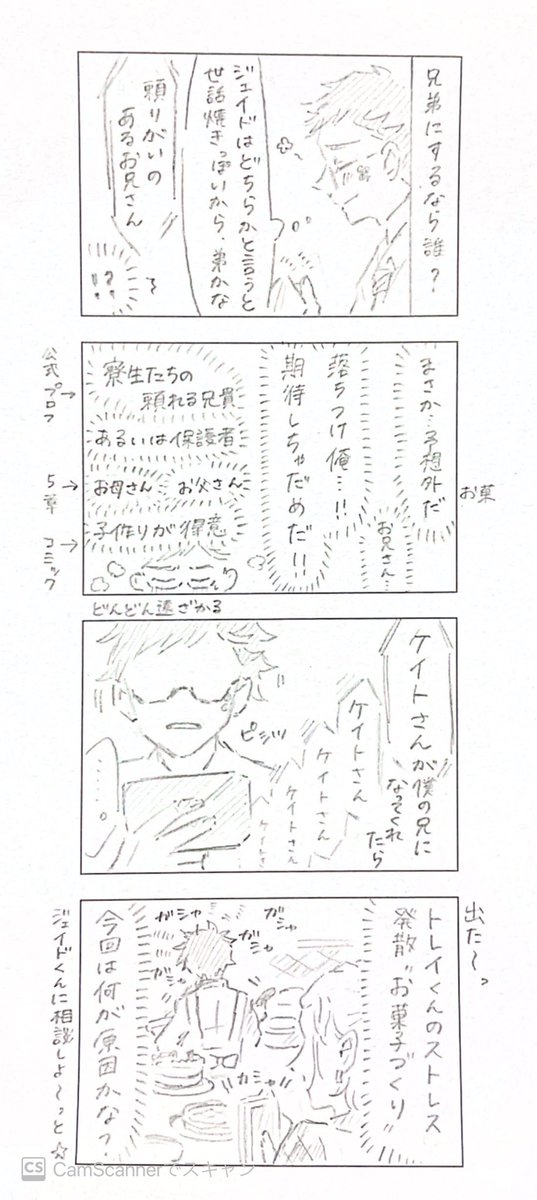 兄弟にするなら誰？
ジェイドはどちらかと言うと
世話焼きっぽいから、弟かな
頼りがいの
あるお兄さん
!?
まさか…予想外だ
お兄さん…
落ちつけ俺…!!
期待しちゃだめだ!!
寮生たちの
頼れる兄貴
あるいは保護者
お母さん
お父さん
子作りが得意
お菓
公式プロフ→
5章→
コミック→
どんどん遠ざかる
ケイトさんが僕の兄に
なってくれ
たら
ケイトさん
ケイトさん
ケイトさん
ケイトさ
ピシッ
……。
出た〜っ
トレイくんのストレス
発散"お菓子づくり"
ガシャ
ガシャ
ガシャ
ガシャ
ガシャ
今回は何が原因かな？
ジェイドくんに相談しよ〜っと☆
CS CamScannerでスキャン